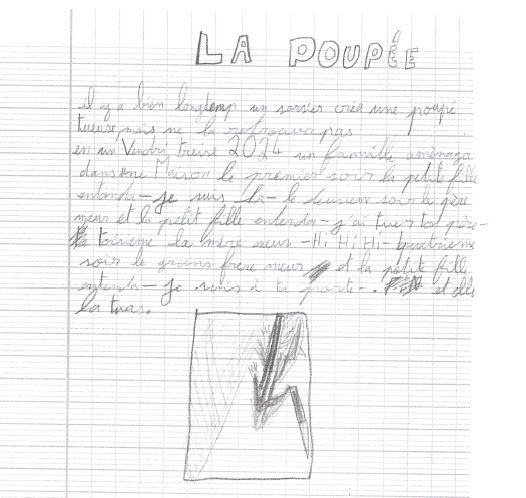 LA POUPÉE
il y a bien longtemp un sorsier créa une poupé
tueuse mais ne la retrouva pas
en un Vendri treise 2024 un famille aménaga
dans une Maison le premier soir la petite fille
entenda - je suis là - le deusiem soir le père
meur et la petit fille entenda - j'ai tuer ton père -
le toisieme la mère meur - Hi Hi Hi - quatrieme
soir le grans frere meur et la petite fille
entenda - je suis à ta porte - . et elle
la tuas.